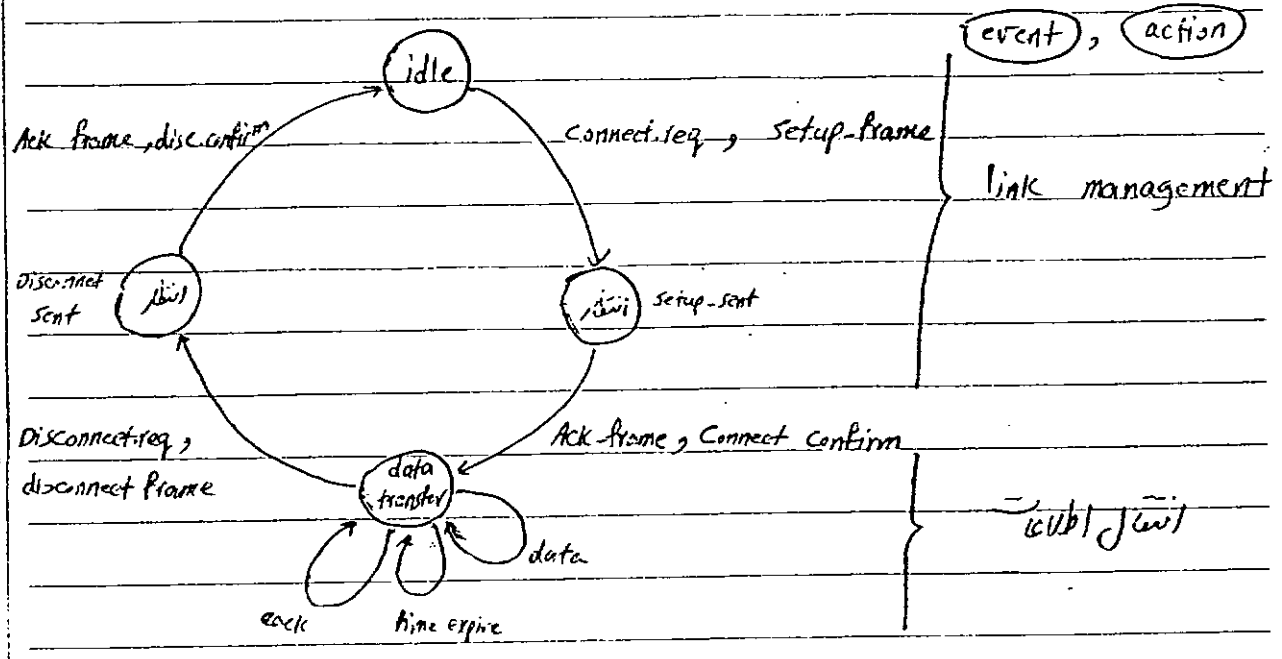 event, action
idle
Ack frame, disc.confirm
Connect.req, setup-frame
link management
Disconnect
sent
انتظار
انتظار
setup-sent
Disconnect.req,
disconnect frame
Ack-frame, Connect confirm
data
transfer
انتقال اطلاعات
data
time expire